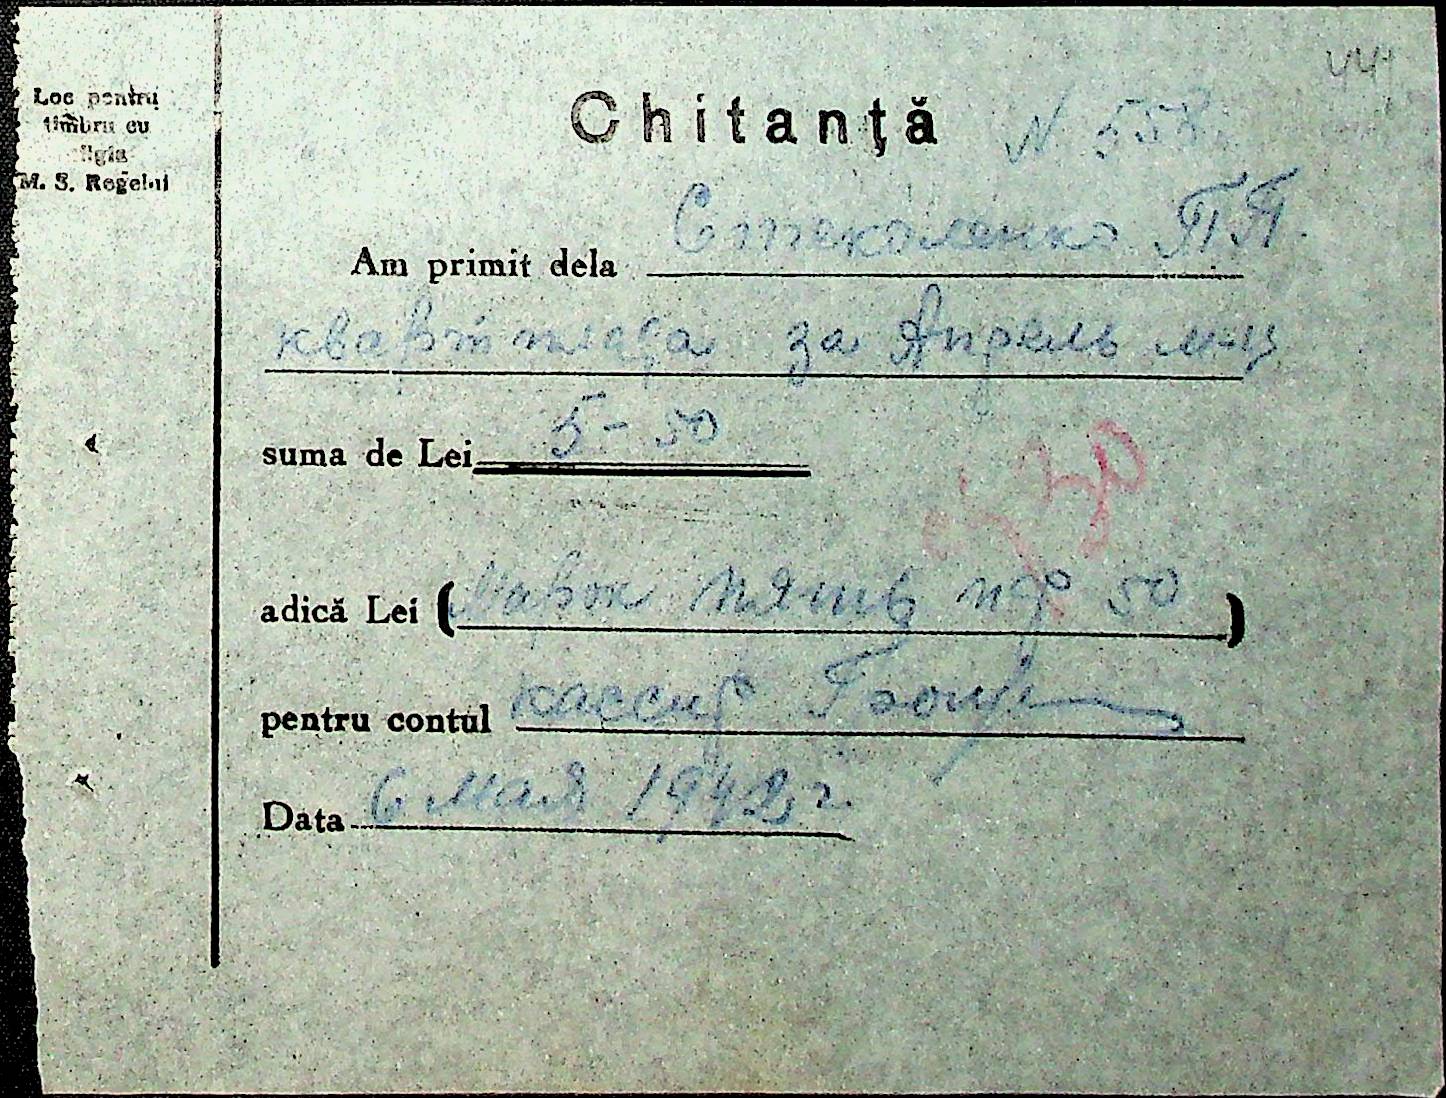 441
Loc pentru
timbru cu
efigia
M. S. Regelui
Chitanţă N 558
Am primit dela Стеколенко П П.
квартплата за Апрель м-ц
suma de Lei 5-50
adică Lei (Марок пять пф 50)
pentru contul кассир
Data 6 Мая 1942 г.